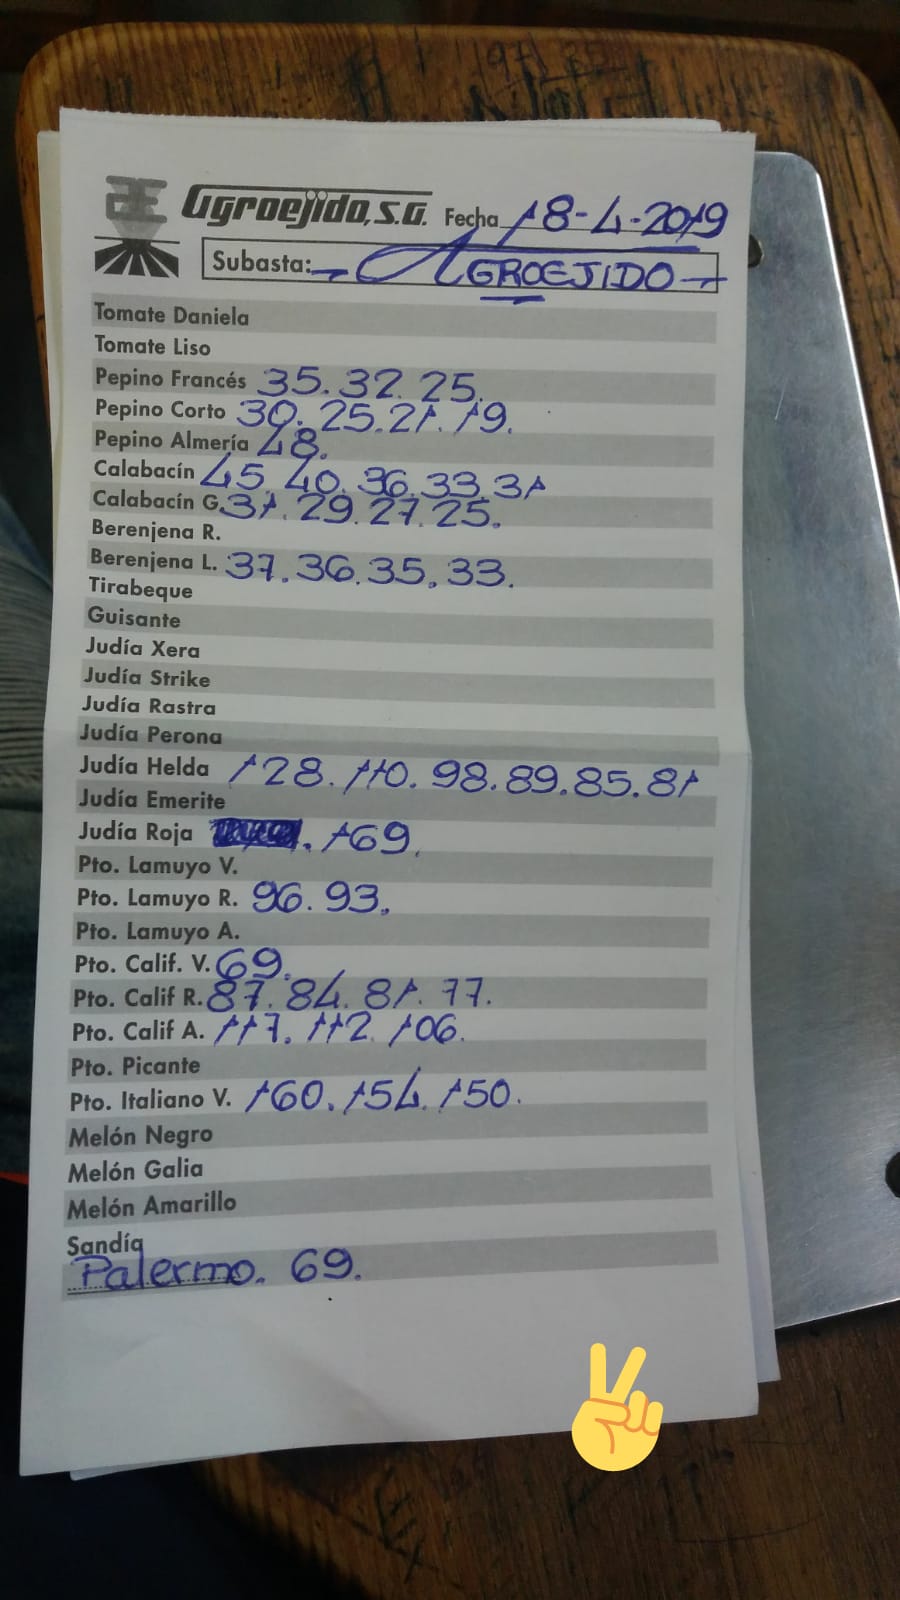 Agroejido, S.A. Fecha 18-4-2019
Subasta: AGROEJIDO
Tomate Daniela
Tomate Liso
Pepino Francés 35. 32. 25.
Pepino Corto 30. 25. 21. 19.
Pepino Almería 48.
Calabacín 45. 40. 36. 33. 31
Calabacín G. 31. 29. 27. 25.
Berenjena R.
Berenjena L. 37. 36. 35. 33.
Tirabeque
Guisante
Judía Xera
Judía Strike
Judía Rastra
Judía Perona
Judía Helda 128. 110. 98. 89. 85. 81
Judía Emerite
Judía Roja . 169.
Pto. Lamuyo V.
Pto. Lamuyo R. 96. 93.
Pto. Lamuyo A.
Pto. Calif. V. 69.
Pto. Calif R. 87. 84. 81. 77.
Pto. Calif A. 117. 112. 106.
Pto. Picante
Pto. Italiano V. 160. 154. 150.
Melón Negro
Melón Galia
Melón Amarillo
Sandía
Palermo. 69.